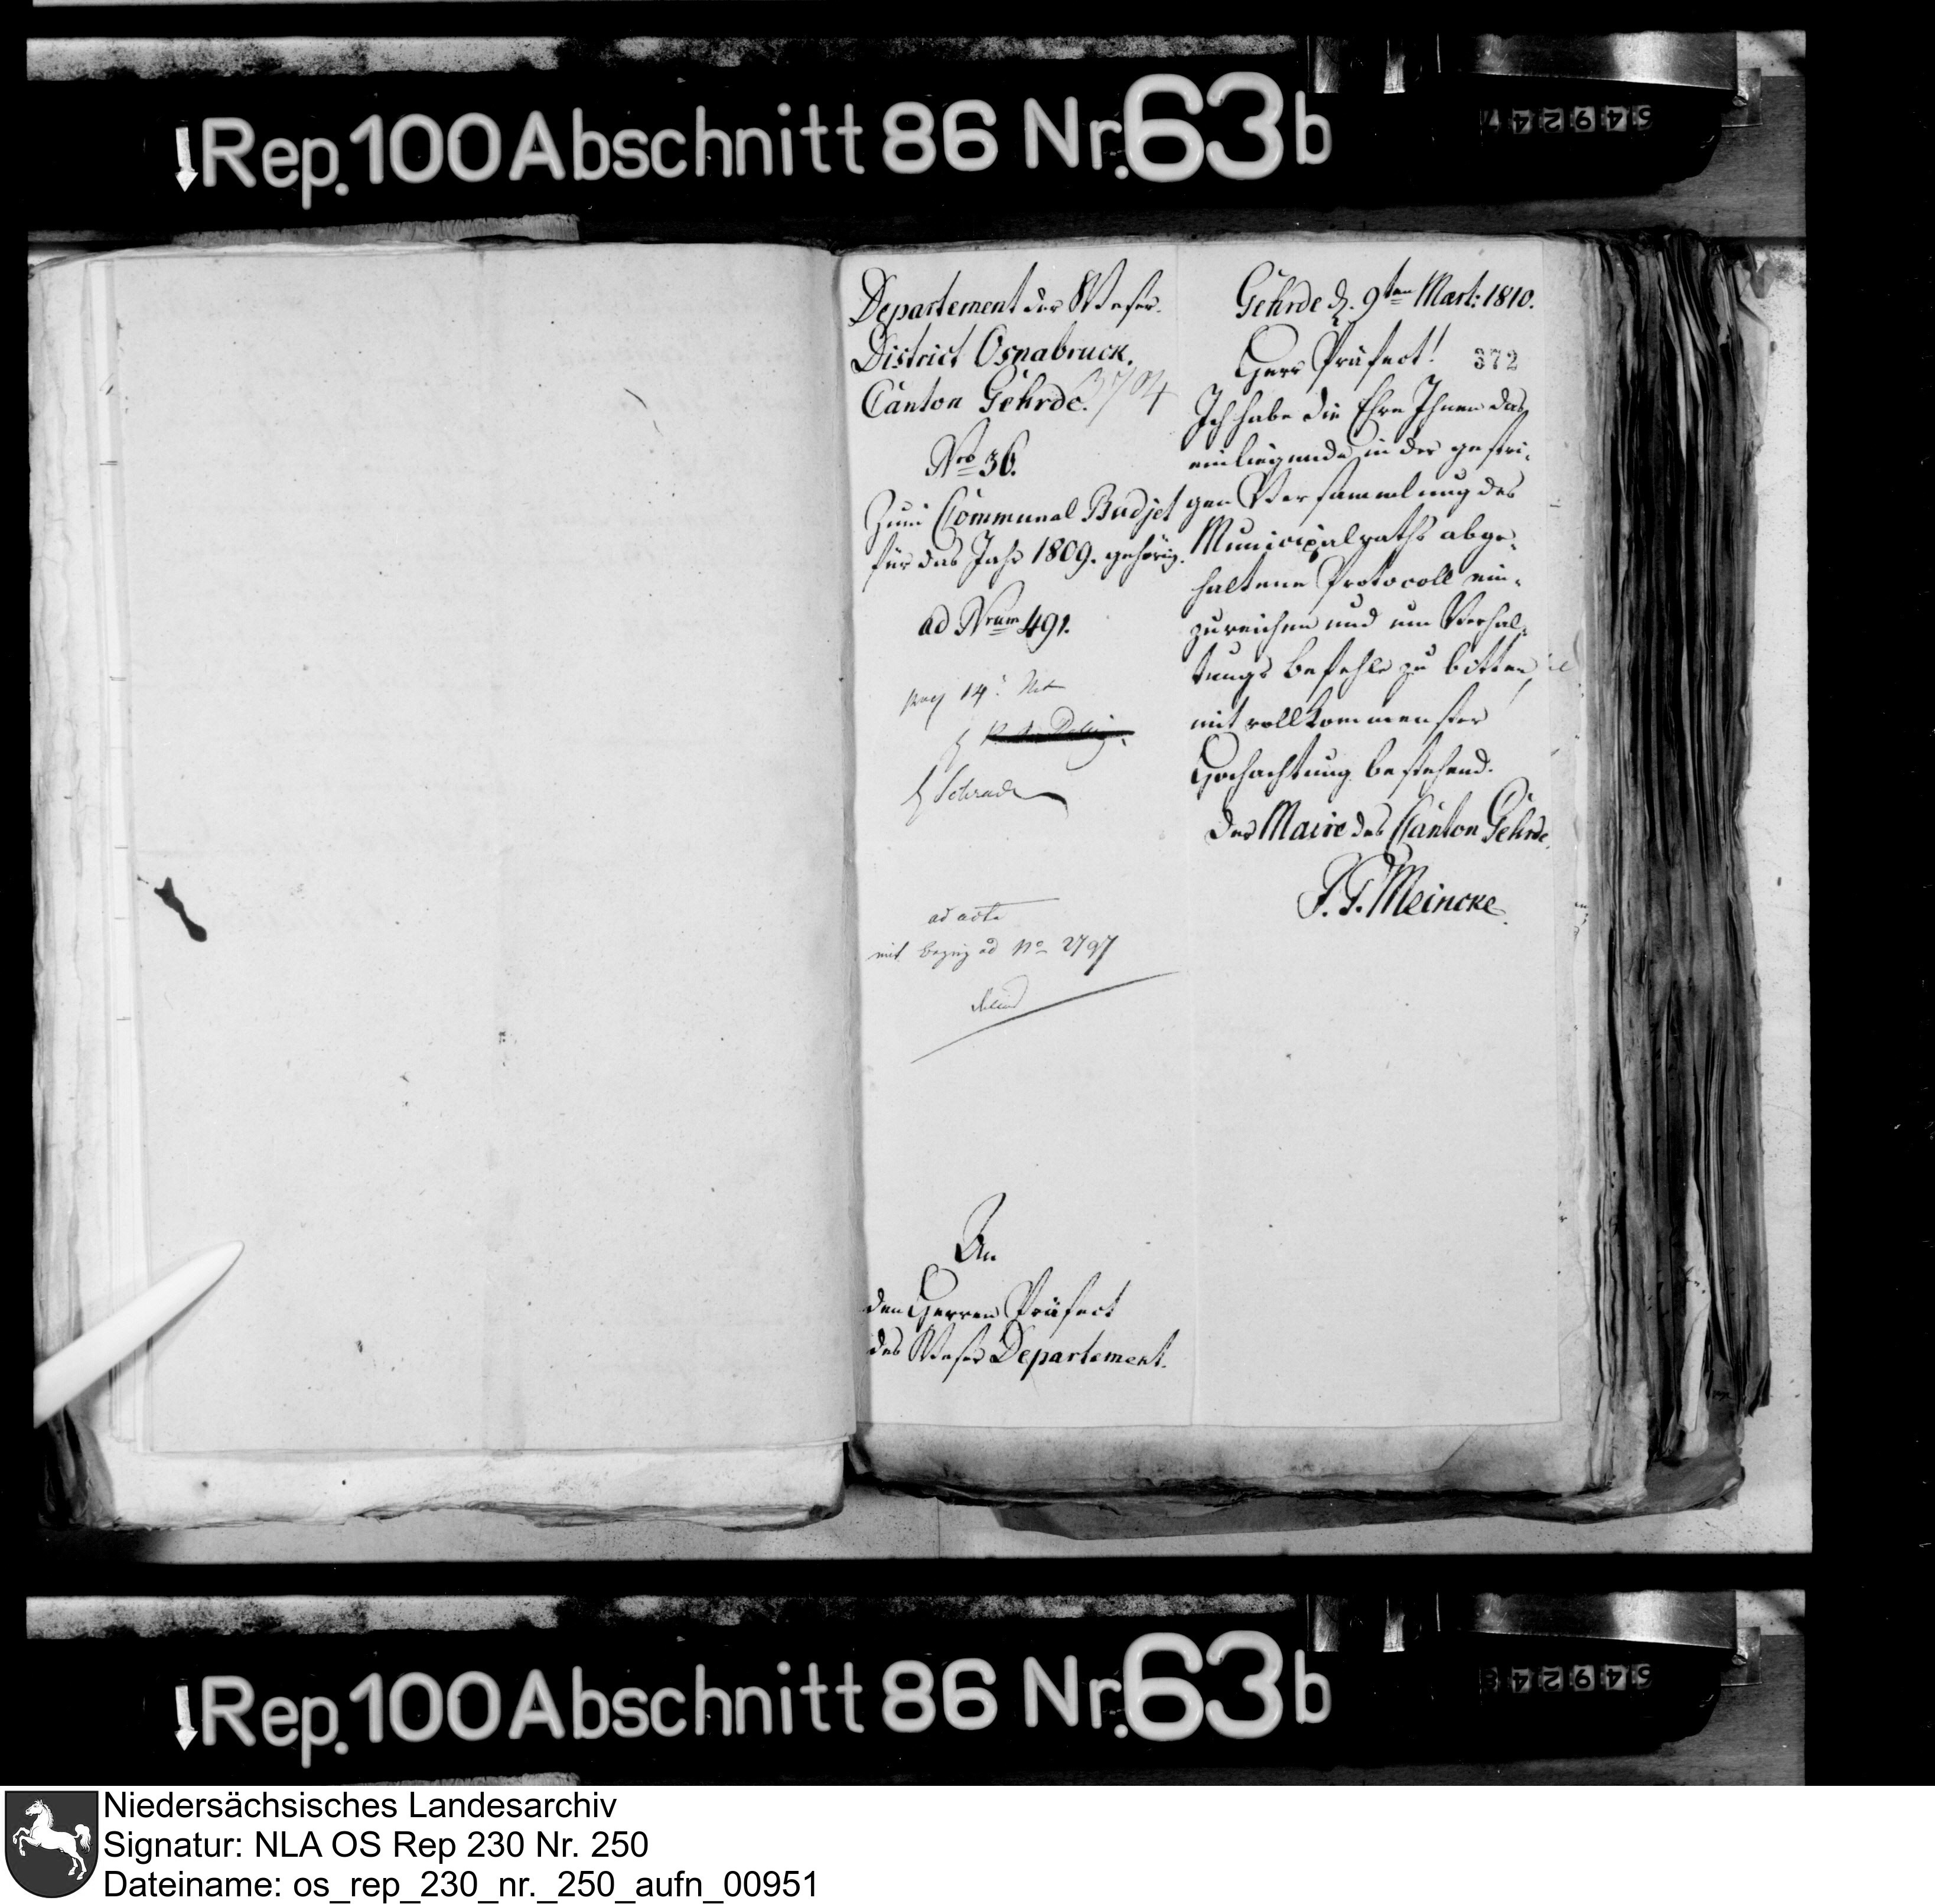 Rep. 100 Abschnitt 86 Nr. 63 b
Departement der Weser.
District Osnabruck.
Canton Gehrde.
3704
Nro 36.
Zum Communal Budjet
für das Jahr 1809. gehörig.
ad Nrum 491.
ad acta
mit Bezug ad No 2797
An
den Herren Präfect
des Weser Departement.
Gehrde d. 9ten Mart: 1810.
Herr Präfect!
372
Ich habe die Ehre Ihnen das
einliegende in der gestri-
gen Versammlung des
Municipalraths abge-
haltene Protocoll ein-
zureichen und um Verhal-
tungs befehle zu bitten,
mit vollkommenster
Hochachtung bestehend.
Der Maire des Canton Gehrde.
Meincke
Rep. 100 Abschnitt 86 Nr. 63 b
Niedersächsisches Landesarchiv
Signatur: NLA OS Rep 230 Nr. 250
Dateiname: os_rep_230_nr._250_aufn_00951